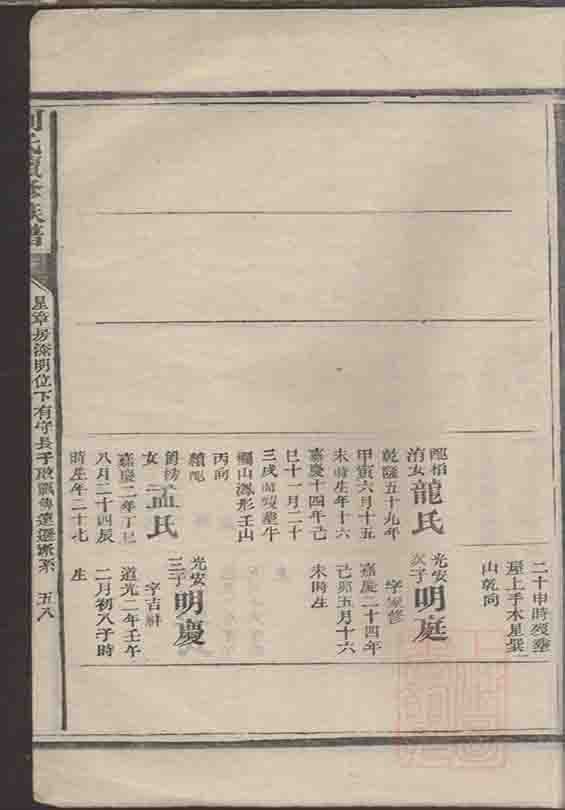 二十申時歿塟
屋上手水星巽
山乾向
配柏
洧女
龍氏
乾隆五十九年
甲寅六月十五
未時生年十六
嘉慶十四年己
巳十一月二十
三戌時歿塟牛
欄山湖形壬山
丙向
續配
爵榜
女
孟氏
嘉慶二年丁巳
八月二十四辰
時生年二十七
光安
次子
明庭
字家修
嘉慶二十四年
己卯五月十六
未時生
光安
三子
明慶
字吉祥
道光二年壬午
二月初八子時
生
劉氏續修族譜
星漳房添明位下有守長子
五八